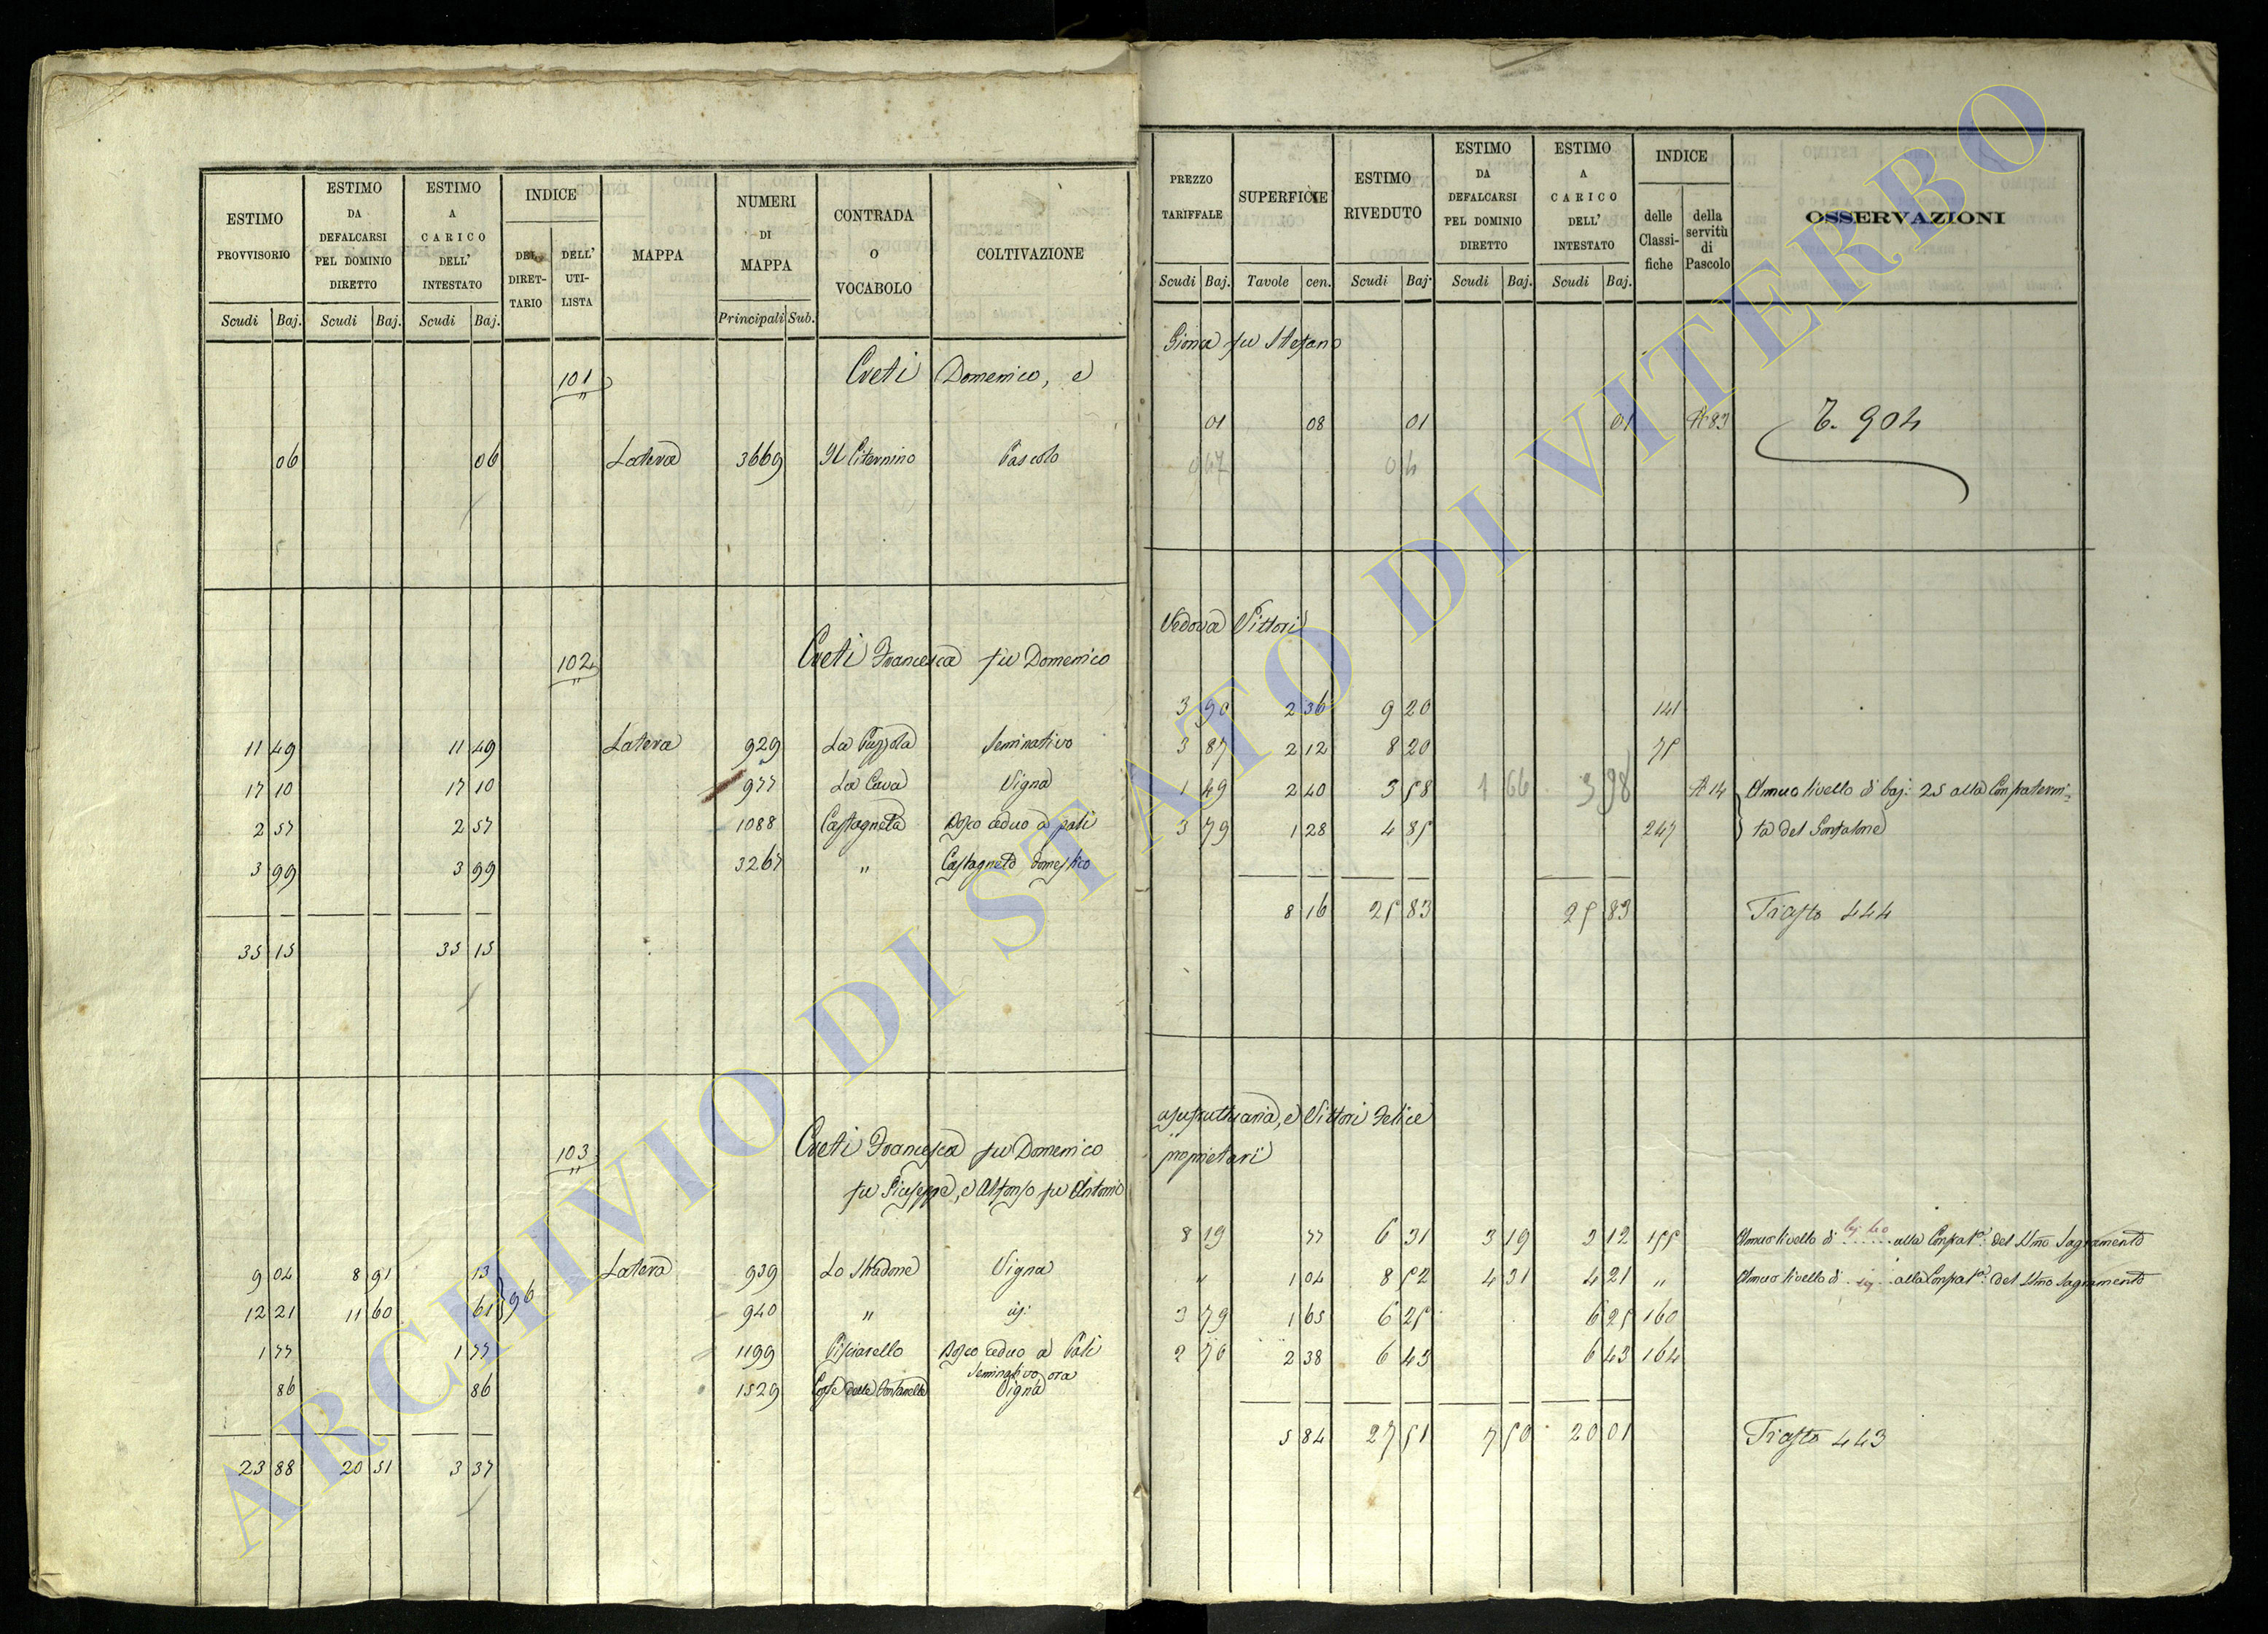 ESTIMO PROVVISORIO
ESTIMO DA DEFALCARSI PEL DOMINIO DIRETTO
ESTIMO A CARICO DELL' INTESTATO
INDICE
DEL DIRET-TARIO
DELL' UTI-LISTA
MAPPA
NUMERI DI MAPPA
CONTRADA O VOCABOLO
COLTIVAZIONE
Scudi Baj. Scudi Baj. Scudi Baj. Principali Sub.
101 Creti Domenico, e
06 06 Latera 3669 Il Citernino Pascolo
102 Creti Francesca fu Domenico
11 49 11 49 Latera 929 La Puzzola Seminativo
17 10 17 10 977 La Cava Vigna
2 57 2 57 1088 Castagneta Bosco ceduo a pali
3 99 3 99 3267 " Castagneto domestico
35 15 35 15
103 Creti Francesca fu Domenico
fu Giuseppe, e Alfonso fu Antonio
9 04 8 91 13 Latera 939 Lo Stradone Vigna
96
12 21 11 60 61 940 " id:
1 77 1 77 1199 Pisciarello Bosco ceduo a Pali
Seminativo ora
86 86 1529 Coste delle Fontanelle Vigna
23 88 20 51 3 37
PREZZO TARIFFALE
SUPERFICIE
ESTIMO RIVEDUTO
ESTIMO DA DEFALCARSI PEL DOMINIO DIRETTO
ESTIMO A CARICO DELL' INTESTATO
INDICE
delle Classi-fiche
della servitù di Pascolo
OSSERVAZIONI
Scudi Baj. Tavole cen. Scudi Baj. Scudi Baj. Scudi Baj.
Giona fu Stefano
01 08 01 01 A 83 T. 904
04
Vedova Vittori
3 90 2 36 9 20 141
3 87 2 12 8 20 75
1 49 2 40 3 58 1 66 3 98 A 14 Annuo livello di baj: 25 alla Confraterni=
3 79 1 28 4 85 247 ta del Gonfalone
8 16 25 83 25 83 Trasto 444
usufruttuaria, e Vittori Felice
proprietari
8 19 77 6 31 3 19 3 12 155 Annuo livello di baj 40 alla Confrat.a del SSmo Sagramento
" 1 04 8 52 4 31 4 21 " Annuo livello di alla Confrat.a del SSmo Sagramento
3 79 1 65 6 25 6 25 160
2 70 2 38 6 43 6 43 164
5 84 27 51 7 50 20 01 Trasto 443
ARCHIVIO DI STATO DI VITERBO